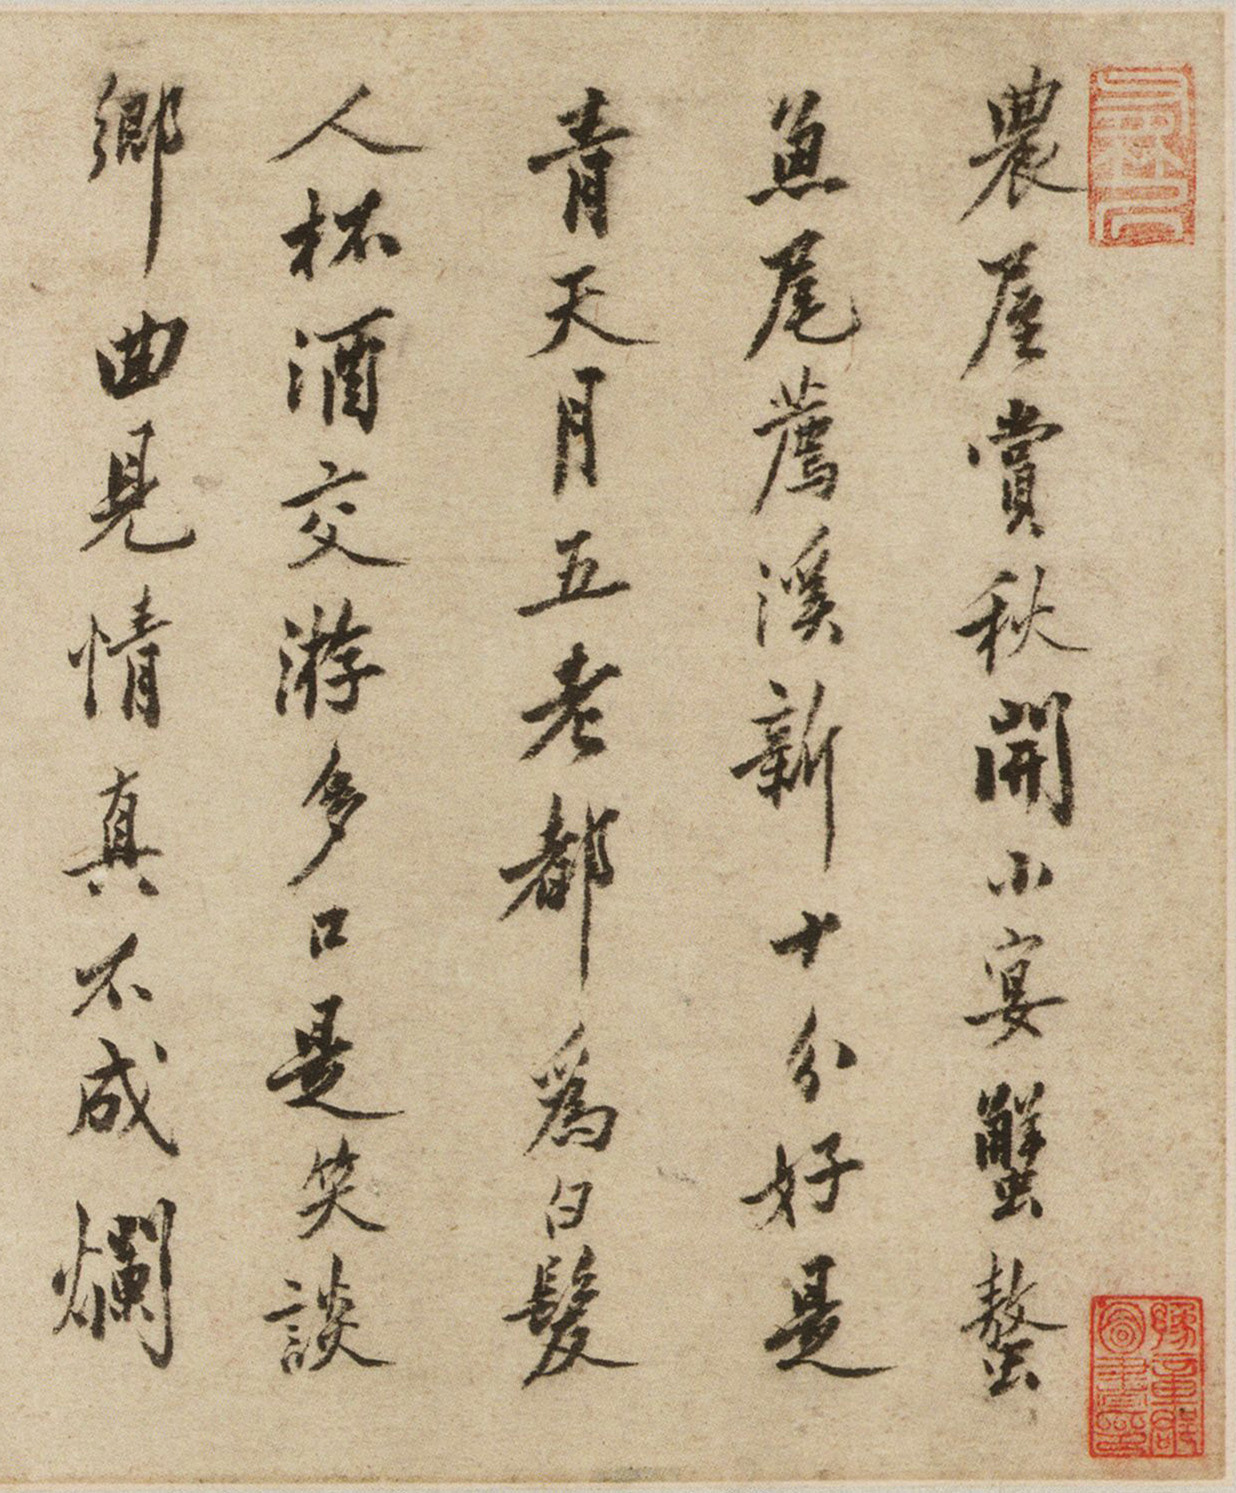 農屋賞秋開小宴蟹螯
魚尾薦溪新十分好是
青天月五老都為白髮
人杯酒交游多口是笑談
鄉曲見情真不成爛